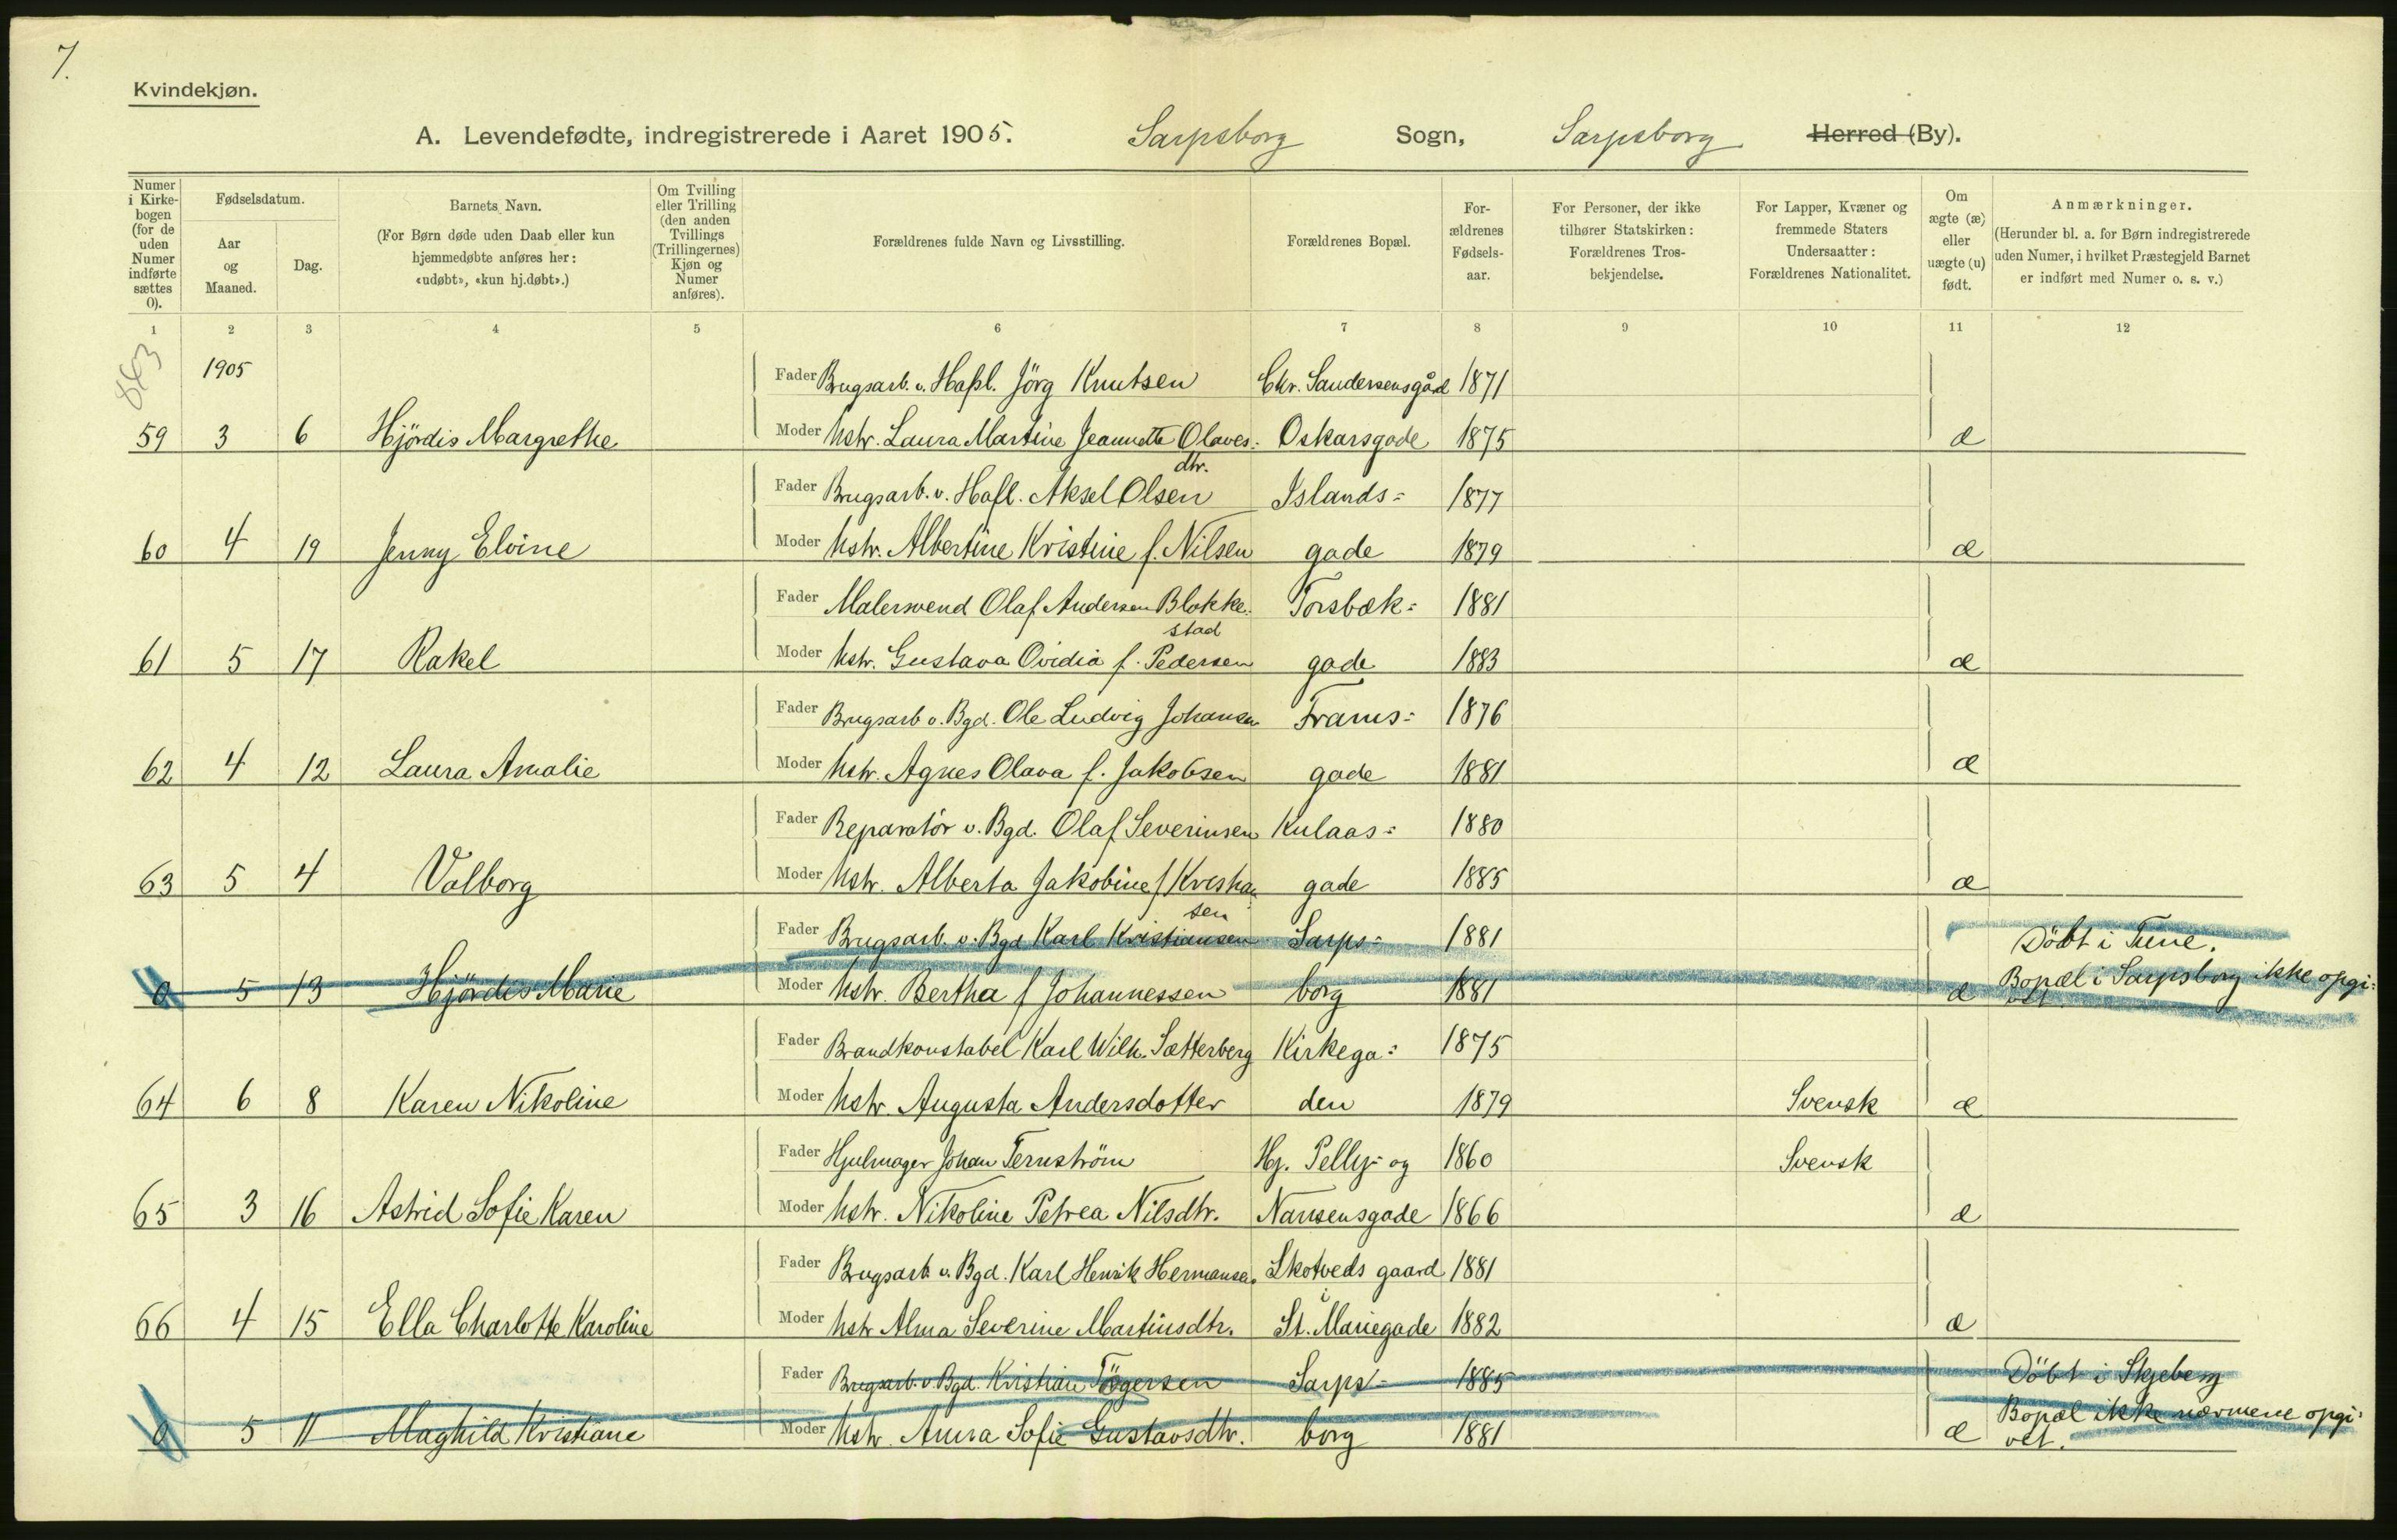 7.
Kvindekjøn.
A. Levendefødte, indregistrerede i Aaret 1905. Sarpsborg Sogn, Sarpsborg Herred (By).
Numer i Kirkebogen (for de uden Numer indførte sættes 0).
Fødselsdatum.
Aar og Maaned.
Dag.
Barnets Navn.
(For Børn døde uden Daab eller kun hjemmedøbte anføres her: «udøbt», «kun hj.døbt».)
Om Tvilling eller Trilling (den anden Tvillings (Trillingernes) Kjøn og Numer anføres).
Forældrenes fulde Navn og Livsstilling.
Forældrenes Bopæl.
Forældrenes Fødselsaar.
For Personer, der ikke tilhører Statskirken: Forældrenes Trosbekjendelse.
For Lapper, Kvæner og fremmede Staters Undersaatter: Forældrenes Nationalitet.
Om ægte (æ) eller uægte (u) født.
Anmærkninger.
(Herunder bl. a. for Børn indregistrerede uden Numer, i hvilket Præstegjeld Barnet er indført med Numer o. s. v.)
1 2 3 4 5 6 7 8 9 10 11 12
863
1905
Fader Brugsarb. v. Hafsl. Jörg Knutsen Chr. Sandersensgård 1871
59 3 6 Hjördis Margrethe Moder Hstr. Laura Martine Jeanette Olaves= Oskarsgade 1875 æ
dtr.
Fader Brugsarb. v. Hafl. Aksel Olsen Islands= 1877
60 4 19 Jenny Elvine Moder Hstr. Albertine Kristine f. Nilsen gade 1879 æ
Fader Malersvend Olaf Andersen Blokke= Torsbæk= 1881
stad
61 5 17 Rakel Moder Hstr. Gustava Ovidia f. Pedersen gade 1883 æ
Fader Brugsarb v. Bgd. Ole Ludvig Johansen Frams= 1876
62 4 12 Laura Amalie Moder Hstr. Agnes Olava f. Jakobsen gade 1881 æ
Fader Reparatör v. Bgd. Olaf Severinsen Kulaas= 1880
63 5 4 Valborg Moder Hstr. Alberta Jakobine f Kristian gade 1885 æ
sen
Fader Brugsarb. v. Bgd Karl Kristiansen Sarps= 1881 Döbt i Tune.
0 5 13 Hjördis Marie Moder Hstr. Bertha f Johannessen borg 1881 æ Bopæl i Sarpsborg ikke opgi=
vet.
Fader Brandkonstabel Karl Wilh. Sætterberg Kirkega= 1875
64 6 8 Karen Nikoline Moder Hstr. Augusta Andersdotter den 1879 Svensk æ
Fader Hjulmager Johan Ternström Hj. Pelly= og 1860 Svensk
65 3 16 Astrid Sofie Karen Moder Hstr. Nikoline Petrea Nilsdtr. Nansensgade 1866 æ
Fader Brugsarb. v. Bgd. Karl Henrik Hermansen Skotveds gaard 1881
i
66 4 15 Ella Charlotte Karoline Moder Hstr Alma Severine Martinsdtr. St. Mariegade 1882 æ
Fader Brugsarb. v Bgd. Kristian Tögersen Sarps= 1885 Döbt i Skjeberg
0 5 11 Maghild Kristiane Moder Hstr. Anna Sofie Gustavsdtr. borg 1881 æ Bopæl ikke nærmere opgi=
vet.